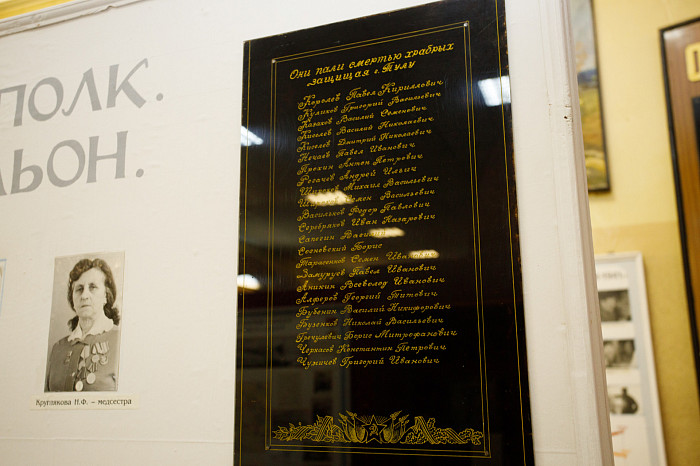 ПОЛК.
ЬОН.
Они пали смертью храбрых
защищая г. Тулу
Королев Павел Кириллович
Куликов Григорий Васильевич
Казаков Василий Семенович
Киселев Василий Николаевич
Киселев Дмитрий Николаевич
Нечаев Павел Иванович
Прохин Антон Петрович
Рогачев Андрей Ильич
Широков Михаил Васильевич
Семен Васильевич
Васильков Федор Павлович
Серебряков Иван Назарович
Сапегин Василий
Сосновский Борис
Тарасенков Семен Иванович
Замуруев Павел Иванович
Аникин Всеволод Иванович
Алферов Георгий Титович
Бубенин Василий Никифорович
Бузенков Николай Васильевич
Гречулевич Борис Митрофанович
Черкасов Константин Петрович
Чумичев Григорий Иванович
Круглякова Н.Ф. – медсестра